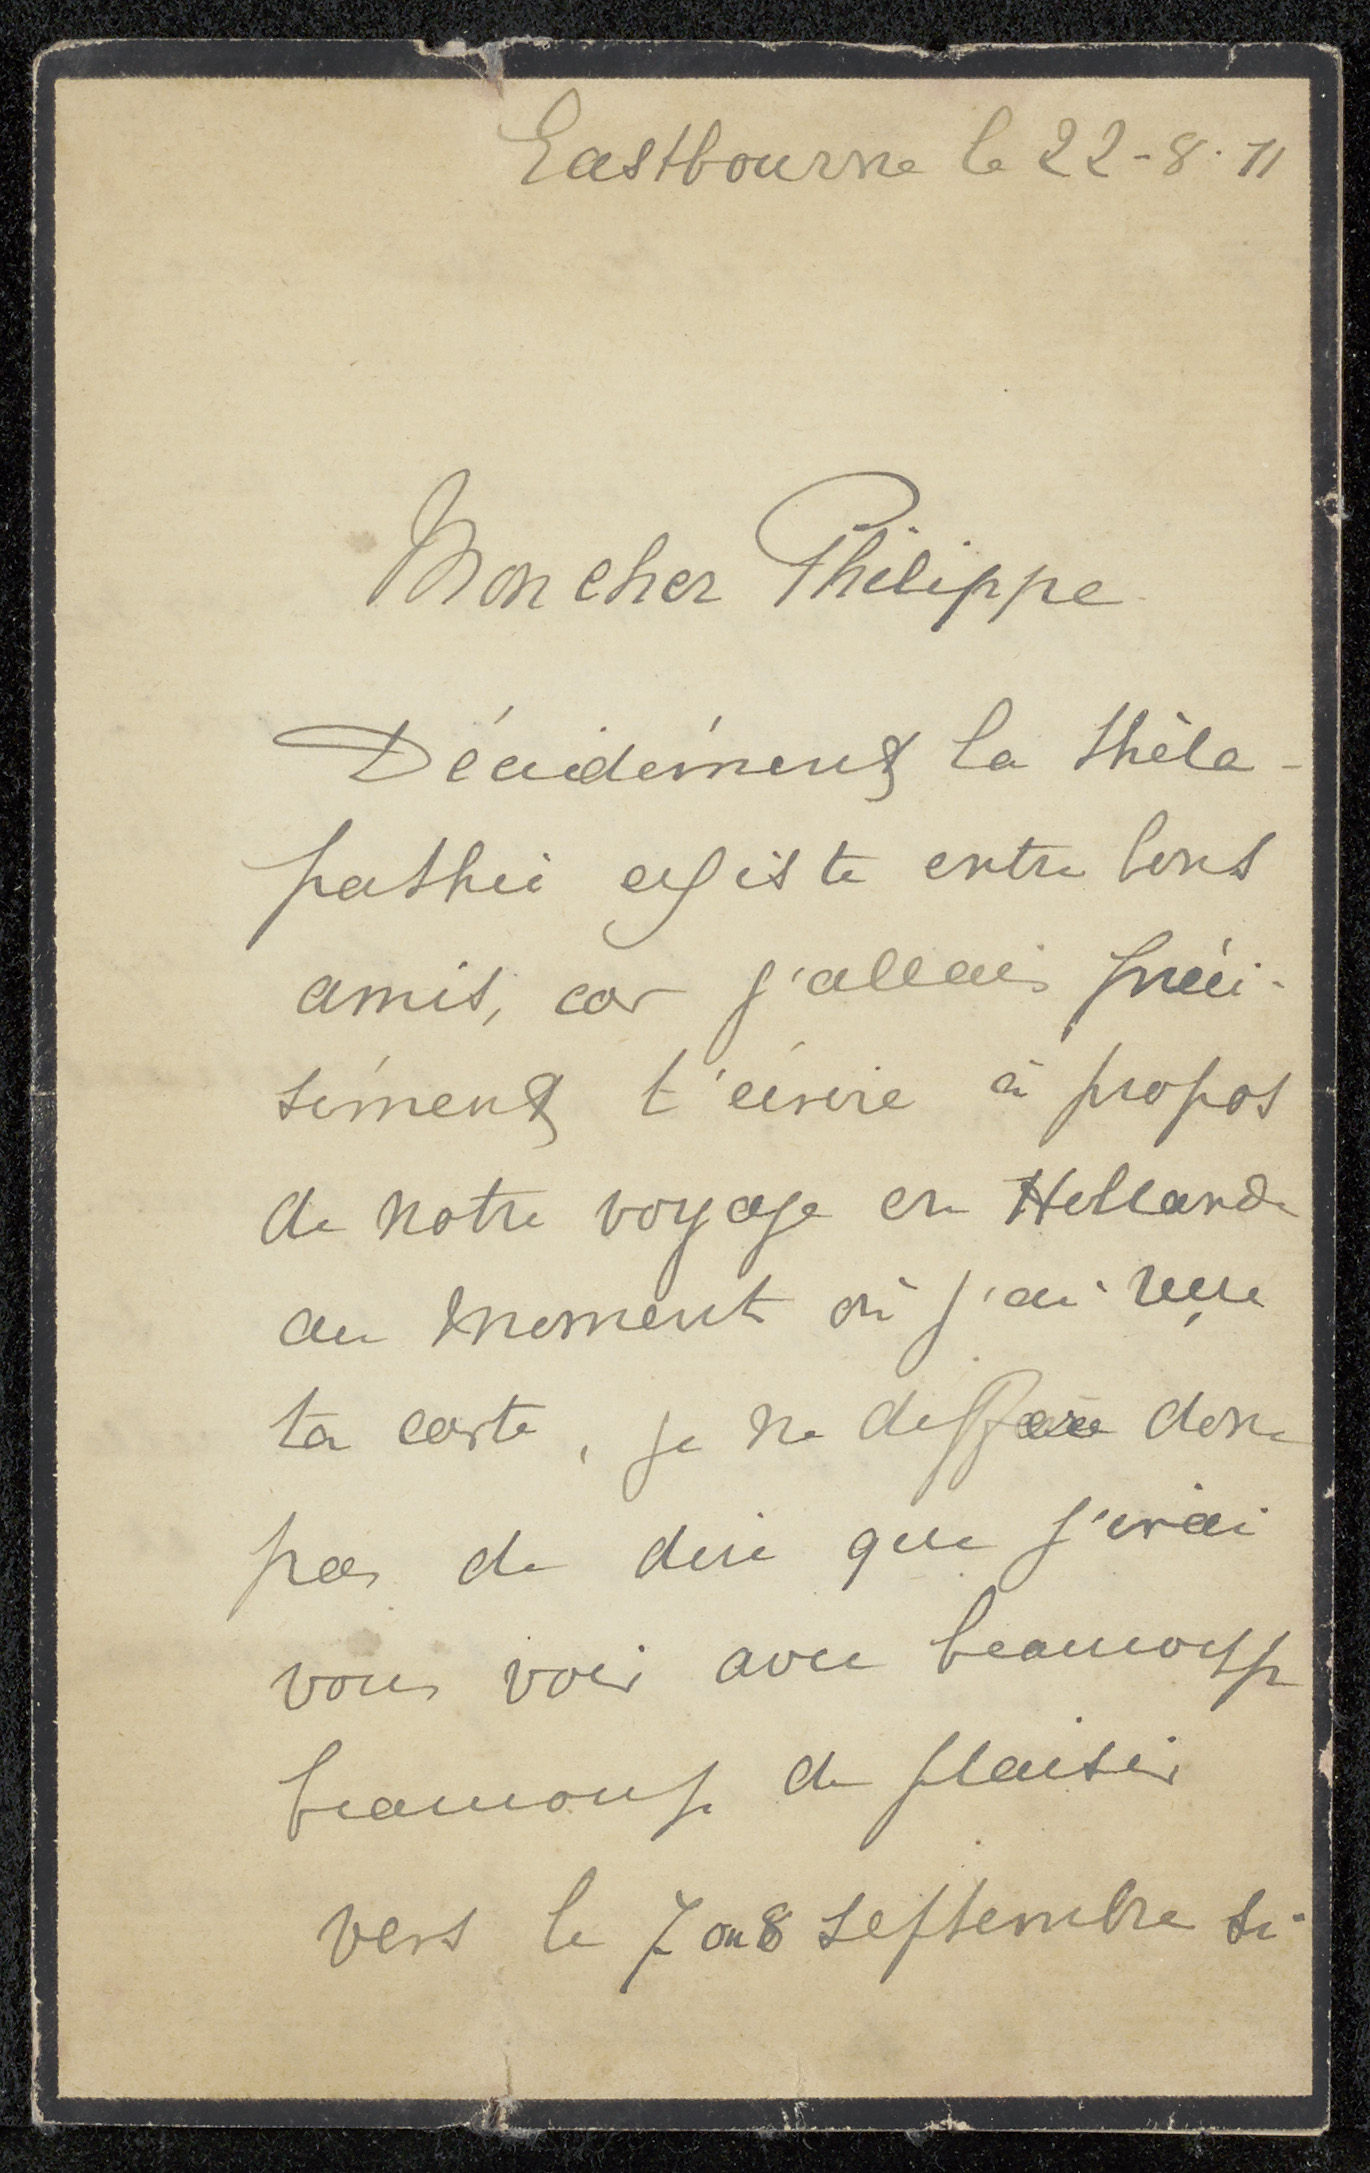 Eastbourne le 22-8-11
Mon cher Philippe
Décidément la théla-
pathie existe entre bons
amis, car j'allais préci-
sément t'écrire à propos
de notre voyage en Hollande
au moment où j'ai reçu
ta carte, je ne differe donc
pas de dire que j'irai
vous voir avec beaucoup
beaucoup de plaisir
vers le 7 ou 8 septembre si